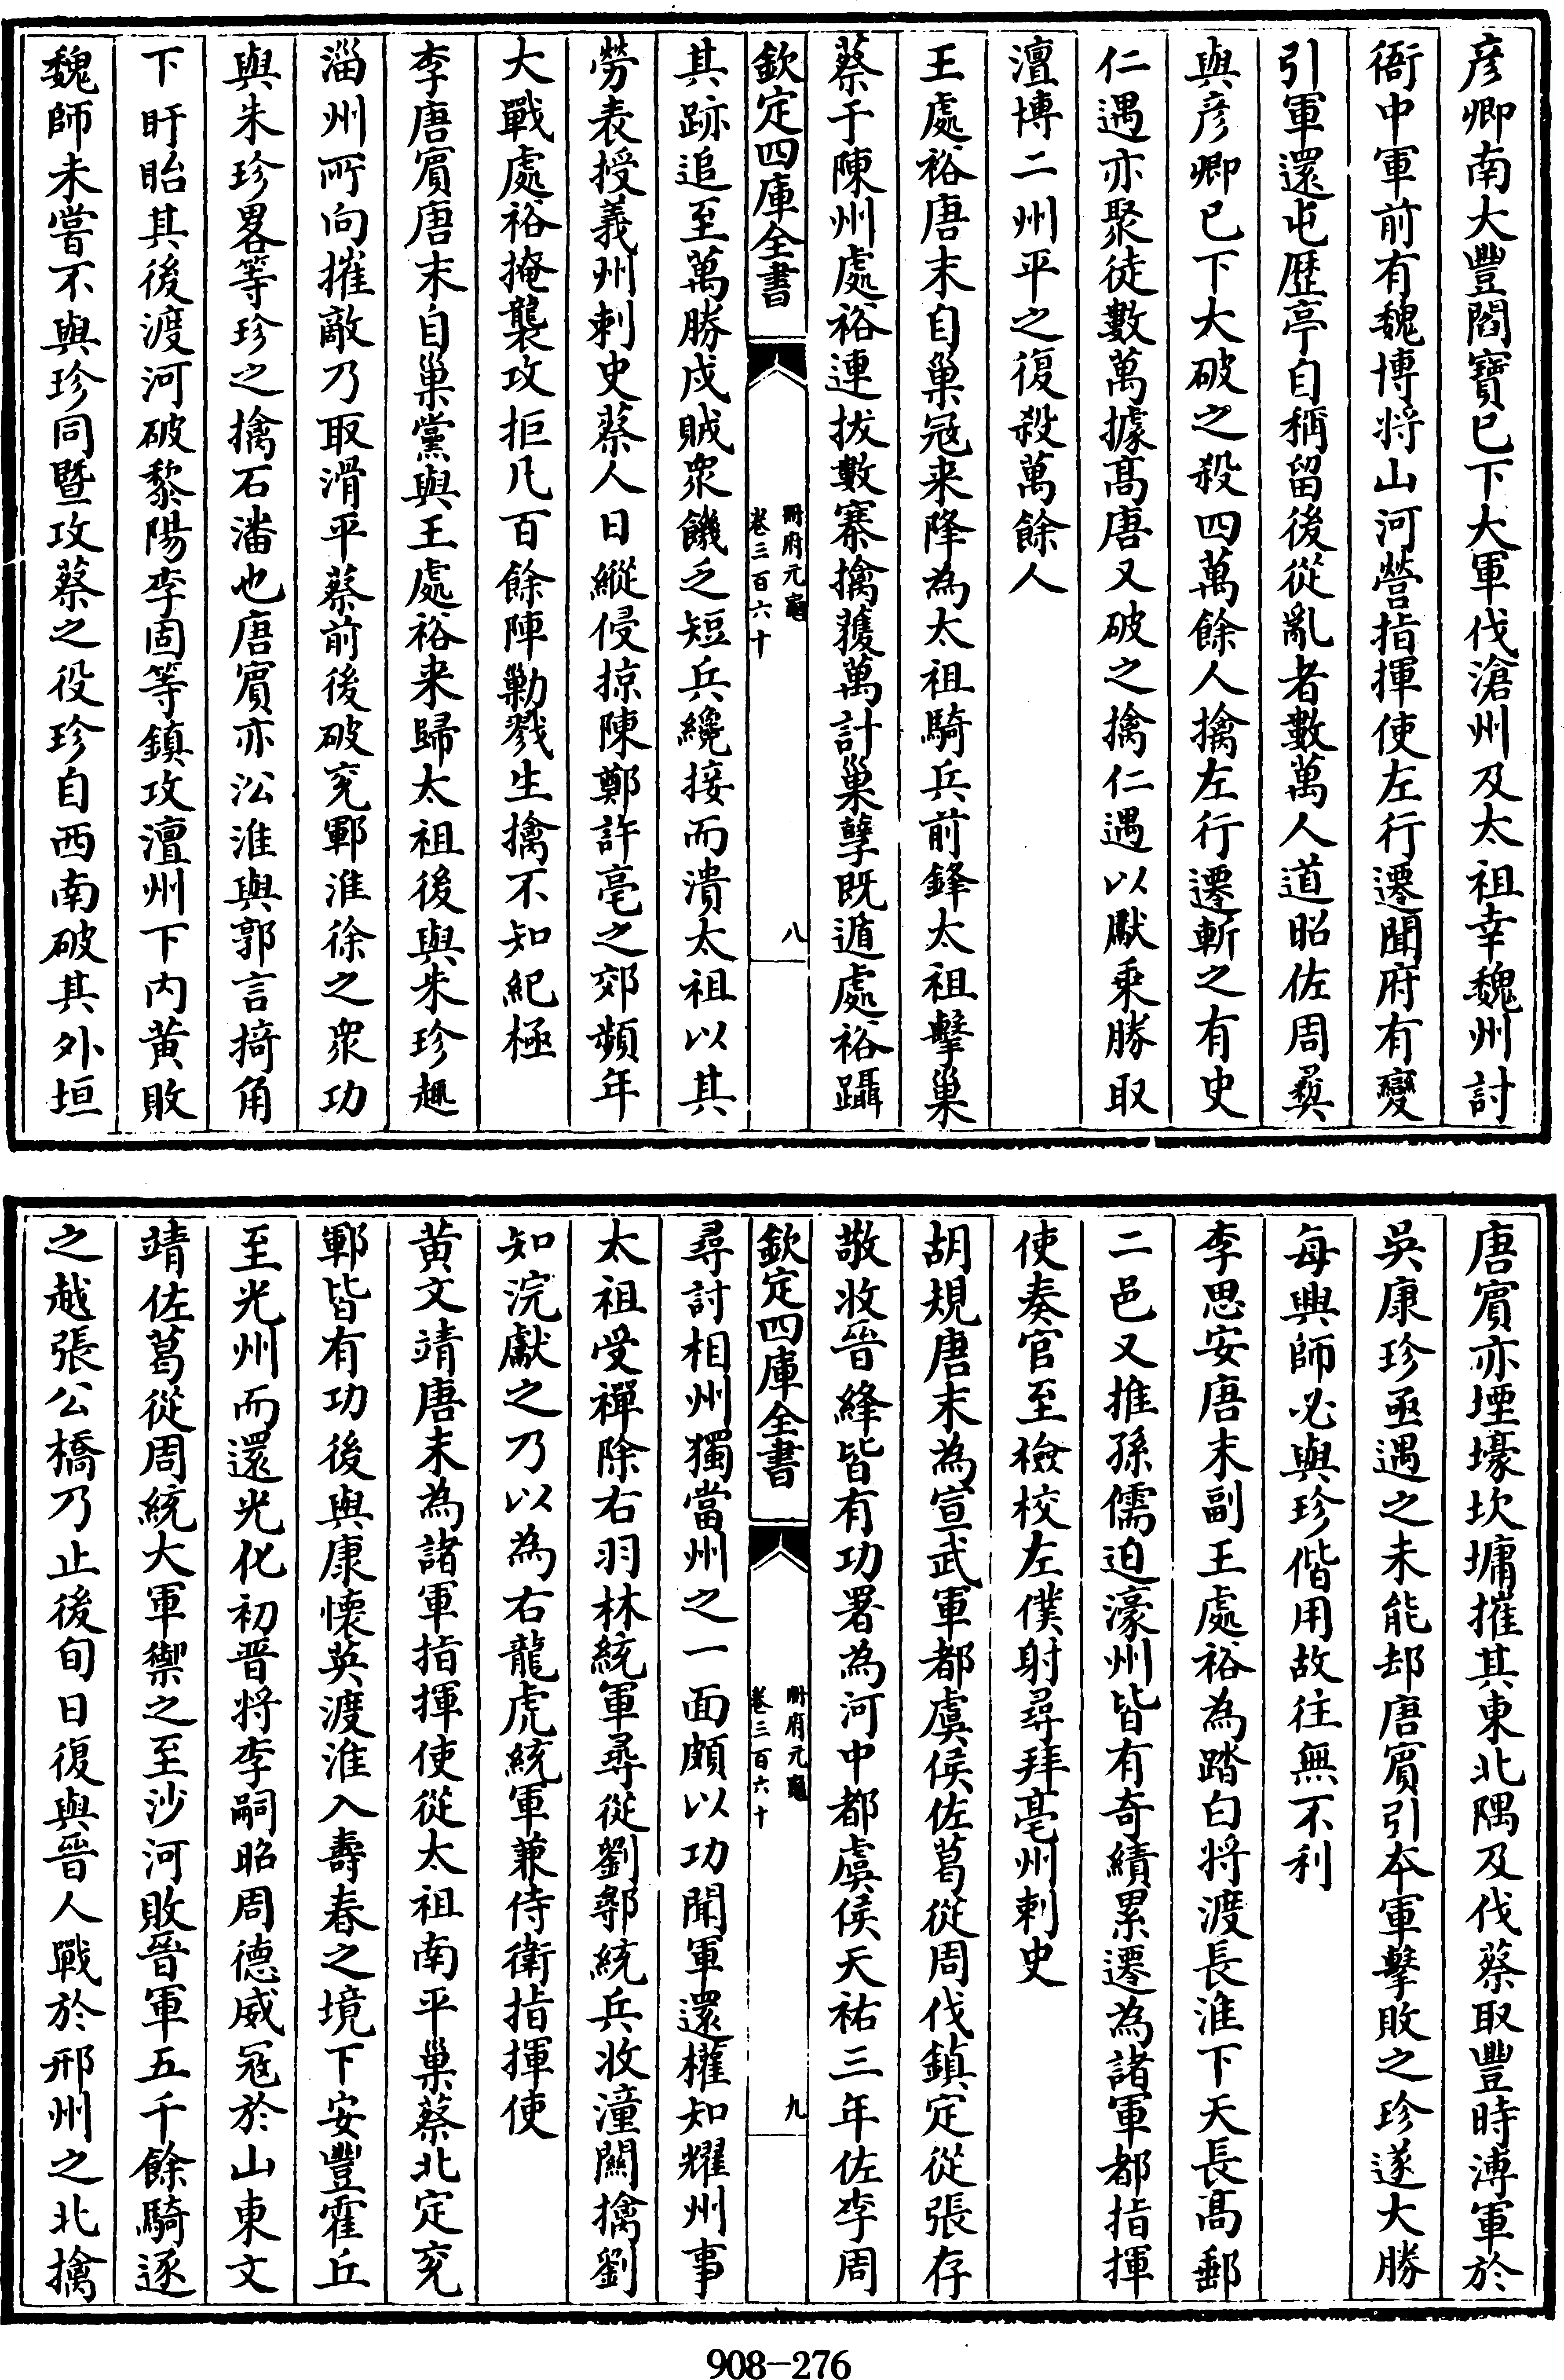 彦卿南大豐閻寳已下大軍伐滄州及太祖幸魏州討
衙中軍前有魏博將山河營指揮使左行遷聞府有變
引軍還屯歴亭自稱留後從亂者數萬人道昭佐周彛
與彦卿已下大破之殺四萬餘人擒左行遷斬之有史
仁遇亦聚徒數萬據髙唐又破之擒仁遇以獻乗勝取
澶博二州平之復殺萬餘人
王處裕唐末自巢冦来降為太祖騎兵前鋒太祖擊巢
蔡于陳州處裕連拔數寨擒獲萬計巢孽既遁處裕躡
欽定四庫全書
冊府元龜
卷三百六十
八
其跡追至萬勝戍賊衆饑乏短兵纔接而潰太祖以其
勞表授義州刺史蔡人日縱侵掠陳鄭許亳之郊頻年
大戰處裕掩襲攻拒凡百餘陣勦戮生擒不知紀極
李唐賔唐末自巢黨與王處裕来歸太祖後與朱珍趣
淄州所向摧敵乃取滑平蔡前後破兖鄆淮徐之衆功
與朱珍畧等珍之擒石璠也唐賔亦沿淮與郭言掎角
下盱眙其後渡河破黎陽李固等鎮攻澶州下内黄敗
魏師未嘗不與珍同暨攻蔡之役珍自西南破其外垣
唐賔亦堙壕坎墉摧其東北隅及伐蔡取豐時溥軍於
吳康珍亟遇之未能却唐賔引本軍擊敗之珍遂大勝
每興師必與珍偕用故往無不利
李思安唐末副王處裕為踏白将渡長淮下天長髙郵
二邑又推孫儒迫濠州皆有竒績累遷為諸軍都指揮
使奏官至檢校左僕射尋拜亳州刺史
胡規唐末為宣武軍都虞侯佐葛從周伐鎮定從張存
敬收晉絳皆有功署為河中都虞侯天祐三年佐李周
欽定四庫全書
冊府元龜
卷三百六十
九
尋討相州獨當州之一面頗以功聞軍還權知耀州事
太祖受禪除右羽林統軍尋從劉鄩統兵收潼闗擒劉
知浣獻之乃以為右龍虎統軍兼侍衛指揮使
黄文靖唐末為諸軍指揮使從太祖南平巢蔡北定兖
鄆皆有功後與康懐英渡淮入壽春之境下安豐霍丘
至光州而還光化初晉将李嗣昭周德威冦於山東文
靖佐葛從周統大軍禦之至沙河敗晉軍五千餘騎逐
之越張公橋乃止後旬日復與晉人戰於邢州之北擒
908-276